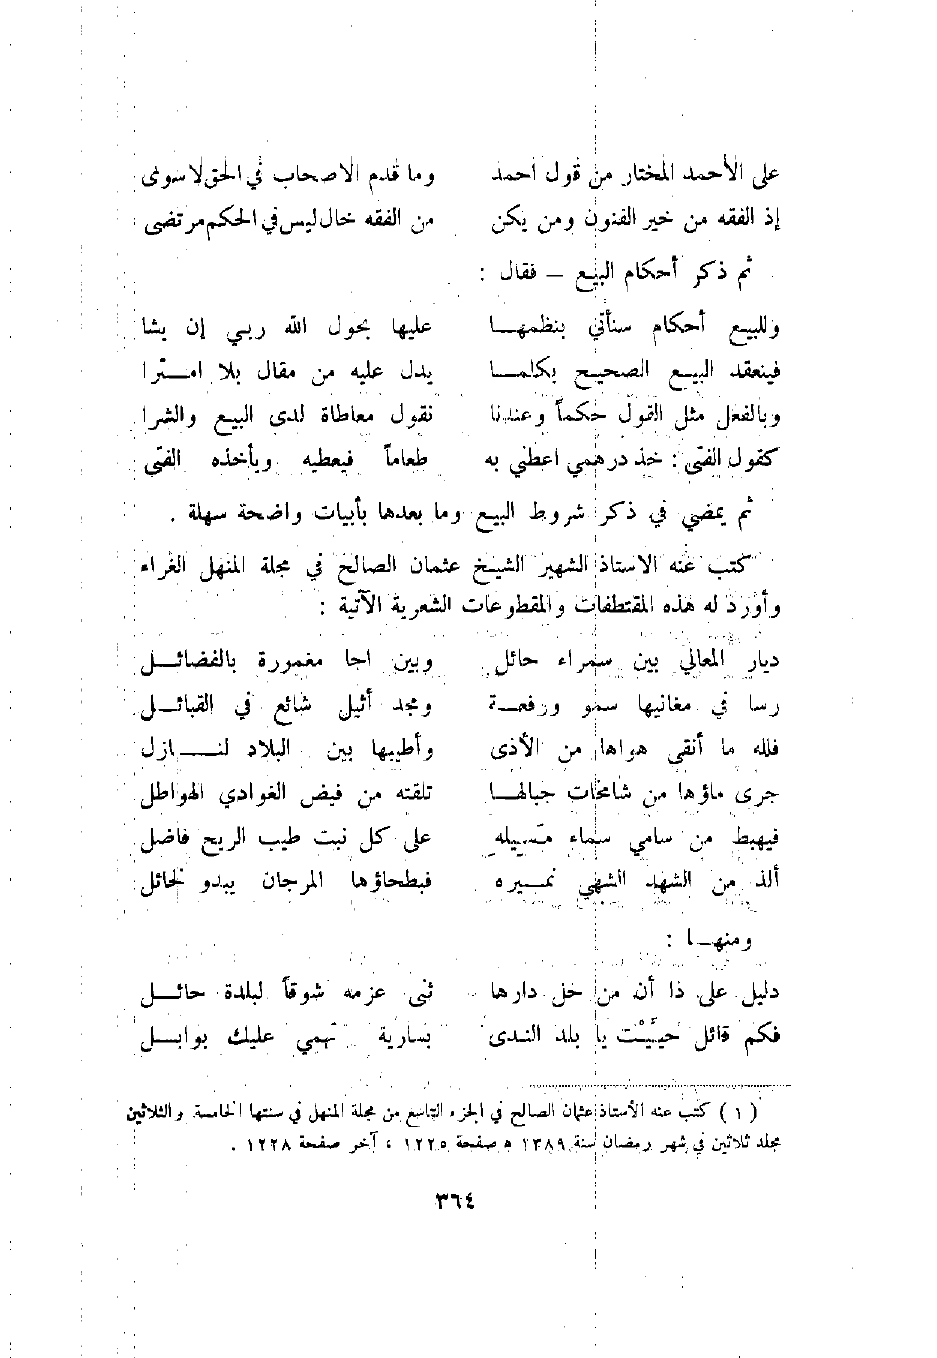 على الأحمد المختار من قول أحمد وما قدم الاصحاب في الحق لا سوى
إذ الفقه من خير الفنون ومن يكن من الفقه خال ليس في الحكم مرتضى
ثم ذكر أحكام البيع – فقال :
وللبيع أحكام سنأتي بنظمهـا عليها بحول الله ربي إن يشا
فينعقد البيع الصحيح بكلمـا يدل عليه من مقال بلا امـترا
وبالفعل مثل القول حكماً وعندنا نقول معاطاة لدى البيع والشرا
كقول الفتى : خذ درهمي اعطني به طعاماً فيعطيه ويأخذه الفتى
ثم يمضي في ذكر شروط البيع وما بعدها بأبيات واضحة سهلة .
كتب عنه الاستاذ الشهير الشيخ عثمان الصالح في مجلة المنهل الغراء
وأورد له هذه المقتطفات والمقطوعات الشعرية الآتية :
ديار المعالي بين سمراء حائل وبين اجا مغمورة بالفضائـل
رسا في مغانيها سمو ورفعـة ومجد أثيل شائع في القبائـل
فلله ما أنقى هواها من الأذى وأطيبها بين البلاد لنـــازل
جرى ماؤها من شامخات جبالهـا تلقته من فيض الغوادي الهواطل
فيهبط من سامي سماء مسيله على كل نبت طيب الريح فاضل
ألذ من الشهد الشهي نمـيره فبطحاؤها المرجان يبدو لحائل
ومنهـا :
دليل على ذا أن من حل دارها ثنى عزمه شوقاً لبلدة حائـل
فكم قائل حييت يا بلد الندى بسارية تهمي عليك بوابـل
( ١ ) كتب عنه الأستاذ عثمان الصالح في الجزء التاسع من مجلة المنهل في سنتها الخامسة والثلاثين
مجلد ثلاثين في شهر رمضان سنة ١٣٨٩ ه صفحة ١٢٢٥ ، آخر صفحة ١٢٢٨ .
٣٦٤